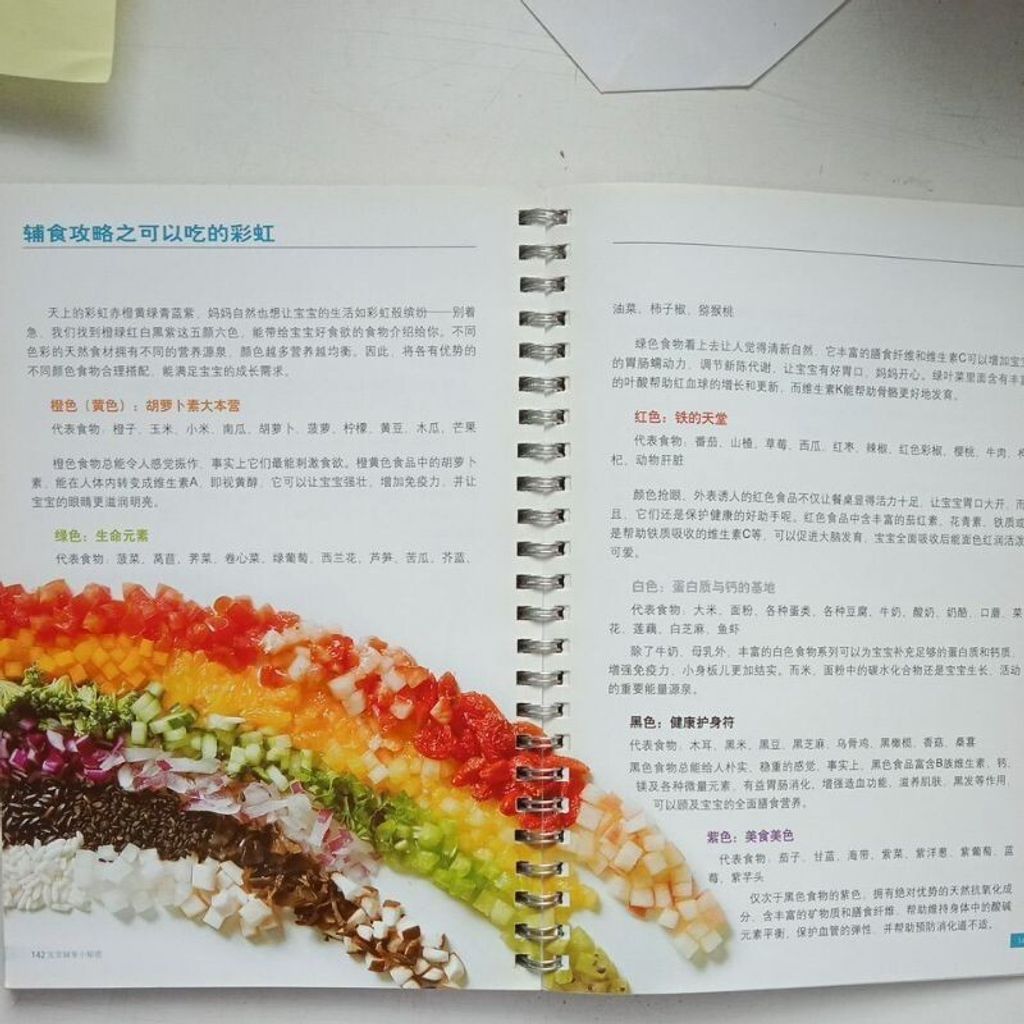 辅食攻略之可以吃的彩虹
天上的彩虹赤橙黄绿青蓝紫，妈妈自然也想让宝宝的生活如彩虹般缤纷——别着
急，我们找到橙绿红白黑紫这五颜六色，能带给宝宝好食欲的食物介绍给你。不同
色彩的天然食材拥有不同的营养源泉，颜色越多营养越均衡。因此，将各有优势的
不同颜色食物合理搭配，能满足宝宝的成长需求。
橙色（黄色）：胡萝卜素大本营
代表食物：橙子、玉米、小米、南瓜、胡萝卜、菠萝、柠檬、黄豆、木瓜、芒果
橙色食物总能令人感觉振作，事实上它们最能刺激食欲。橙黄色食品中的胡萝卜
素，能在人体内转变成维生素A，即视黄醇，它可以让宝宝强壮，增加免疫力，并让
宝宝的眼睛更滋润明亮。
绿色：生命元素
代表食物：菠菜、莴苣、荠菜、卷心菜、绿葡萄、西兰花、芦笋、苦瓜、芥蓝、
142
油菜、柿子椒、猕猴桃
绿色食物看上去让人觉得清新自然，它丰富的膳食纤维和维生素C可以增加宝宝
的胃肠蠕动力，调节新陈代谢，让宝宝有好胃口，妈妈开心。绿叶菜里面含有丰富
的叶酸帮助红血球的增长和更新，而维生素K能帮助骨骼更好地发育。
红色：铁的天堂
代表食物：番茄、山楂、草莓、西瓜、红枣、辣椒、红色彩椒、樱桃、牛肉、枸
杞、动物肝脏
颜色抢眼、外表诱人的红色食品不仅让餐桌显得活力十足，让宝宝胃口大开，而
且，它们还是保护健康的好助手呢。红色食品中含丰富的茄红素、花青素、铁质或
是帮助铁质吸收的维生素C等，可以促进大脑发育，宝宝全面吸收后能面色红润活泼
可爱。
白色：蛋白质与钙的基地
代表食物：大米、面粉、各种蛋类、各种豆腐、牛奶、酸奶、奶酪、口蘑、菜
花、莲藕、白芝麻、鱼虾
除了牛奶、母乳外，丰富的白色食物系列可以为宝宝补充足够的蛋白质和钙质，
增强免疫力，小身板儿更加结实。而米、面粉中的碳水化合物还是宝宝生长、活动
的重要能量源泉。
黑色：健康护身符
代表食物：木耳、黑米、黑豆、黑芝麻、乌骨鸡、黑橄榄、香菇、桑葚
黑色食物总能给人朴实、稳重的感觉，事实上，黑色食品富含B族维生素、钙、
镁及各种微量元素，有益胃肠消化，增强造血功能，滋养肌肤、黑发等作用，
可以顾及宝宝的全面膳食营养。
紫色：美食美色
代表食物：茄子、甘蓝、海带、紫菜、紫洋葱、紫葡萄、蓝
莓、紫芋头
仅次于黑色食物的紫色，拥有绝对优势的天然抗氧化成
分，含丰富的矿物质和膳食纤维，帮助维持身体中的酸碱
元素平衡，保护血管的弹性，并帮助预防消化道不适。